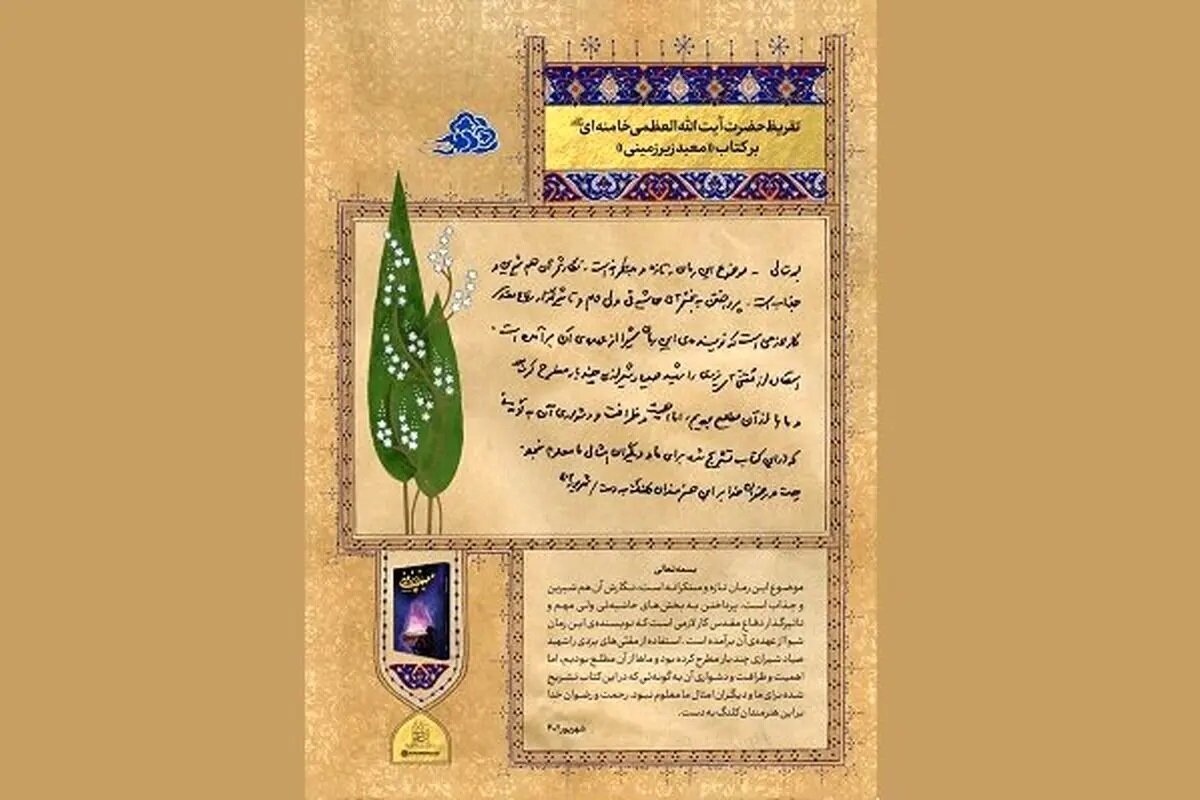 تقریظ حضرت آیت الله العظمی خامنه‌ای
بر کتاب «معبد زیرزمینی»
بسمه‌تعالی - موضوع این رمان، تازه و مبتکرانه است، نگارش آن هم شیرین و
جذاب است. پرداختن به بخش‌های حاشیه‌ئی ولی مهم و تاثیرگذار دفاع مقدس
کار لازمی است که نویسنده‌ی این رمان شیوا از عهده‌ی آن برآمده است.
استفاده از مقنّی‌های یزدی را شهید صیاد شیرازی چند بار مطرح کرده بود
و ماها از آن مطلع بودیم، اما اهمیت و ظرافت و دشواری آن به گونه‌ئی
که در این کتاب تشریح شده برای ما و دیگران امثال ما معلوم نبود.
رحمت و رضوان خدا بر این هنرمندان کلنگ به دست / شهریور ۴۰۲
بسمه‌تعالی
موضوع این رمان تازه و مبتکرانه است، نگارش آن هم شیرین
و جذاب است. پرداختن به بخش‌های حاشیه‌ئی ولی مهم و
تاثیرگذار دفاع مقدس کار لازمی است که نویسنده‌ی این رمان
شیوا از عهده‌ی آن برآمده است. استفاده از مقنّی‌های یزدی را شهید
صیاد شیرازی چند بار مطرح کرده بود و ماها از آن مطلع بودیم، اما
اهمیت و ظرافت و دشواری آن به گونه‌ئی که در این کتاب تشریح
شده برای ما و دیگران امثال ما معلوم نبود. رحمت و رضوان خدا
بر این هنرمندان کلنگ به دست.
شهریور ۴۰۲